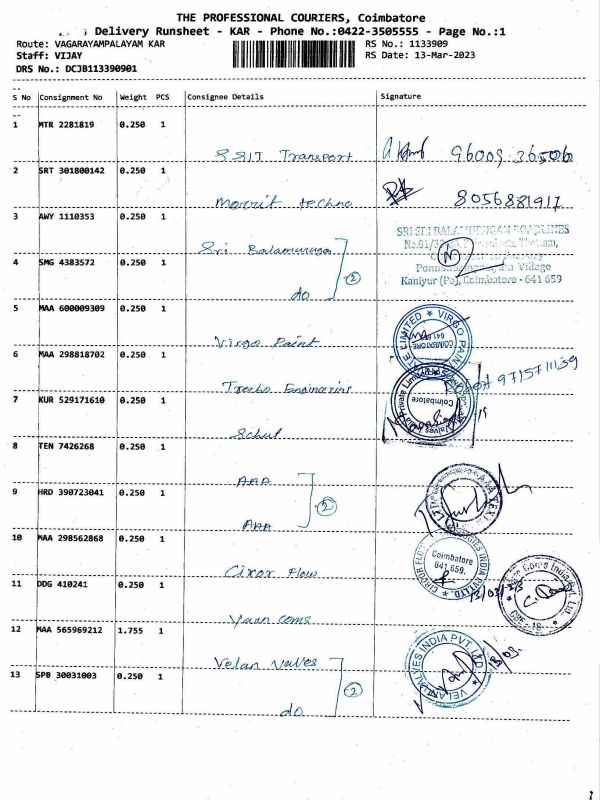 THE PROFESSIONAL COURIERS, Coimbatore
Delivery Runsheet - KAR - Phone No.:0422-3505555 - Page No.:1
Route: VAGARAYAMPALAYAM KAR
RS No.: 1133909
Staff: VIJAY
RS Date: 13-Mar-2023
DRS No.: DCJB113390901
S No Consignment No Weight PCS Consignee Details Signature
1 MTR 2281819 0.250 1
SSIT Transport 96009 36506
2 SRT 301800142 0.250 1
techno 8056881917
3 AWY 1110353 0.250 1
SRI SRI BALAMURUGAN ROADLINES
Sri Balamuruga
No.61/
4 SMG 4383572 0.250 1
2
Village
do
Kaniyur (Po), Coimbatore - 641 659
5 MAA 600009309 0.250 1
Virgo Paint
LIMITED ★ VIRGO PAIN
COIMBATORE
6 MAA 298818702 0.250 1
Engineering
9715711139
7 KUR 529171610 0.250 1
Private Limited
Coimbatore
8 TEN 7426268 0.250 1
AAA
9 HRD 390723041 0.250 1
2
AAA
10 MAA 298562868 0.250 1
Coimbatore
641 659.
INDIA PVT LTD.
Flow
11 DDG 410241 0.250 1
Yaan coms
CBE - 18
12 MAA 565969212 1.755 1
Velan Valves
VELAN VALVES INDIA PVT. LTD
13 SPB 30031003 0.250 1
2
do